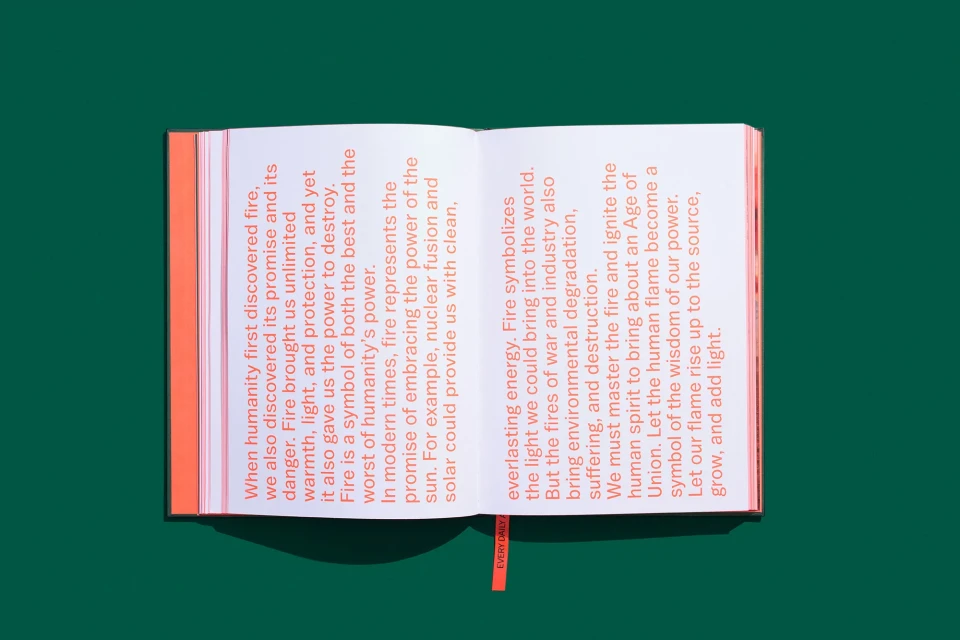 When humanity first discovered fire,
we also discovered its promise and its
danger. Fire brought us unlimited
warmth, light, and protection, and yet
it also gave us the power to destroy.
Fire is a symbol of both the best and the
worst of humanity's power.
In modern times, fire represents the
promise of embracing the power of the
sun. For example, nuclear fusion and
solar could provide us with clean,
everlasting energy. Fire symbolizes
the light we could bring into the world.
But the fires of war and industry also
bring environmental degradation,
suffering, and destruction.
We must master the fire and ignite the
human spirit to bring about an Age of
Union. Let the human flame become a
symbol of the wisdom of our power.
Let our flame rise up to the source,
grow, and add light.
EVERY DAILY